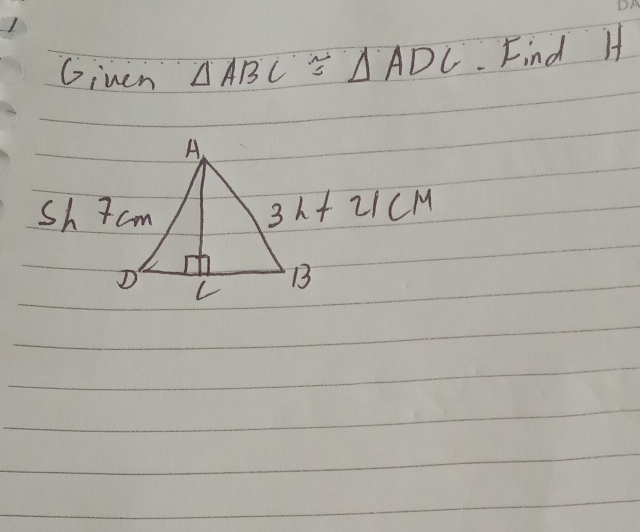 1
Given ΔABC ≅ ΔADC. Find H
A
5h 7cm
3h + 21CM
D
C
B